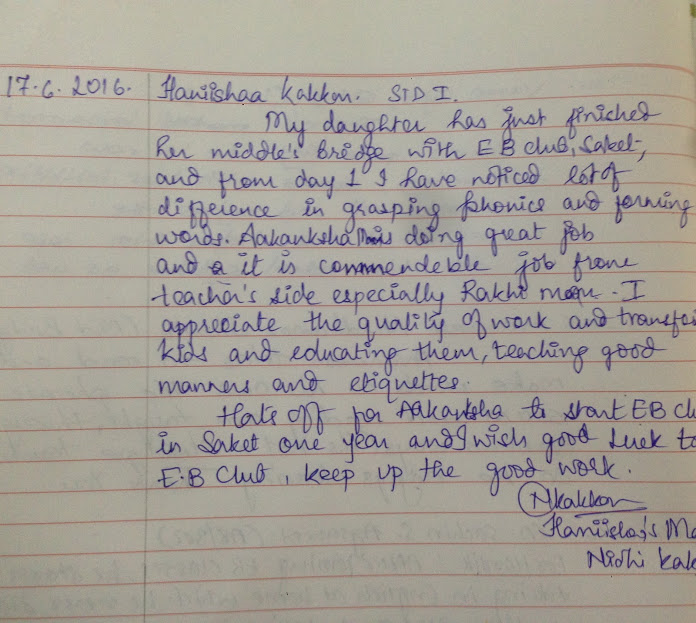 17.6.2016. Haniishaa Kakkar. STD I.
My daughter has just finished
her middle's bridge with EB club, Saket,
and from day 1 I have noticed lot of
difference in grasping phonics and forming
words. Aakanksha Mam is doing great job
and it is commendable job from
teacher's side especially Rakhi mam. I
appreciate the quality of work and transfor
kids and educating them, teaching good
manners and etiquettes.
Hats off for Aakanksha to start EB clu
in Saket one year and I wish good luck to
E.B Club, keep up the good work.
NKakkar
Haniisha's Mo
Nidhi Kak